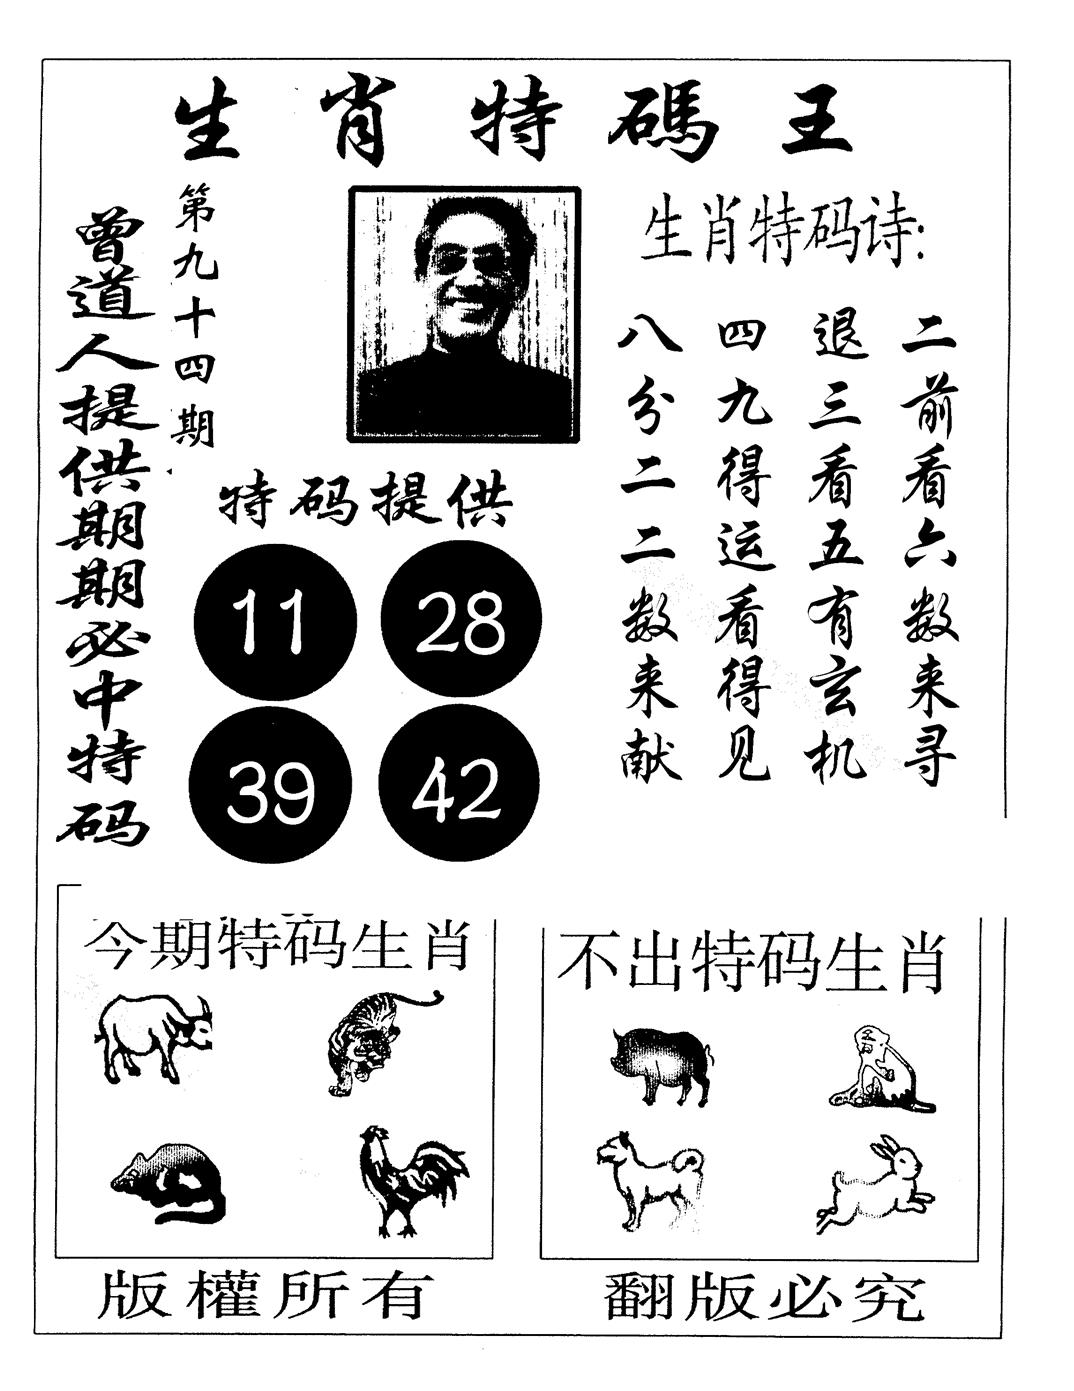 生肖特碼王
曾道人提供期期必中特码
第九十四期
特码提供
11
28
39
42
生肖特码诗:
二前看六数来寻
退三看五有玄机
四九得运看得见
八分二二数来献
今期特码生肖
不出特码生肖
版權所有
翻版必究